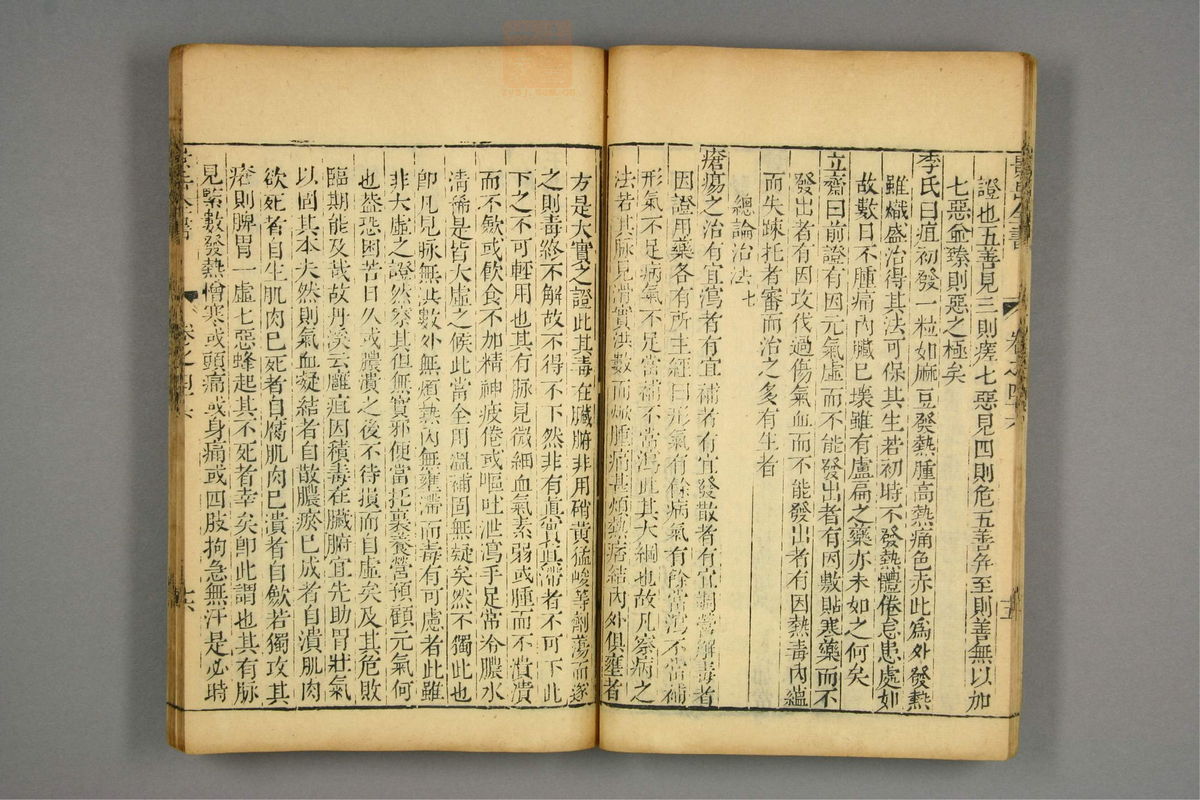 證也五善見三則瘥七惡見四則危五善并至則善無以加
七惡僉臻則惡之極矣
李氏曰疽初發一粒如麻豆發熱腫高熱痛色赤此為外發熱
雖熾盛治得其法可保其生若初時不發熱體倦怠患處如
故數日不腫痛內臟已壞雖有盧扁之藥亦未如之何矣
立齋曰前證有因元氣虛而不能發出者有因敷貼寒藥而不
發出者有因攻伐過傷氣血而不能發出者有因熱毒內蘊
而失踈托者審而治之多有生者
總論治法 七
瘡瘍之治有宜瀉者有宜補者有宜發散者有宜調營解毒者
因證用藥各有所主經曰形氣有餘病氣有餘當瀉不當補
形氣不足病氣不足當補不當瀉此其大綱也故凡察病之
法若其脉見滑實洪數而焮腫痛甚煩熱痞結內外俱壅者
方是大實之證此其毒在臟腑非用硝黃猛峻等劑蕩而逐
之則毒終不解故不得不下然非有眞實眞滯者不可下此
下之不可輕用也其有脉見微細血氣素弱或腫而不潰潰
而不斂或飲食不加精神疲倦或嘔吐泄瀉手足常冷膿水
清稀是皆大虛之候此當全用溫補固無疑矣然不獨此也
卽凡見脉無洪數外無煩熱內無壅滯而毒有可慮者此雖
非大虛之證然察其但無實邪便當托裏養營預顧元氣何
也蓋恐困苦日久或膿潰之後不待損而自虛矣及其危敗
臨期能及哉故丹溪云癰疽因積毒在臟腑宜先助胃壯氣
以固其本夫然則氣血凝結者自散膿瘀已成者自潰肌肉
欲死者自生肌肉已死者自腐肌肉已潰者自斂若獨攻其
瘡則脾胃一虛七惡蜂起其不死者幸矣卽此謂也其有脉
見緊數發熱憎寒或頭痛或身痛或四肢拘急無汗是必時